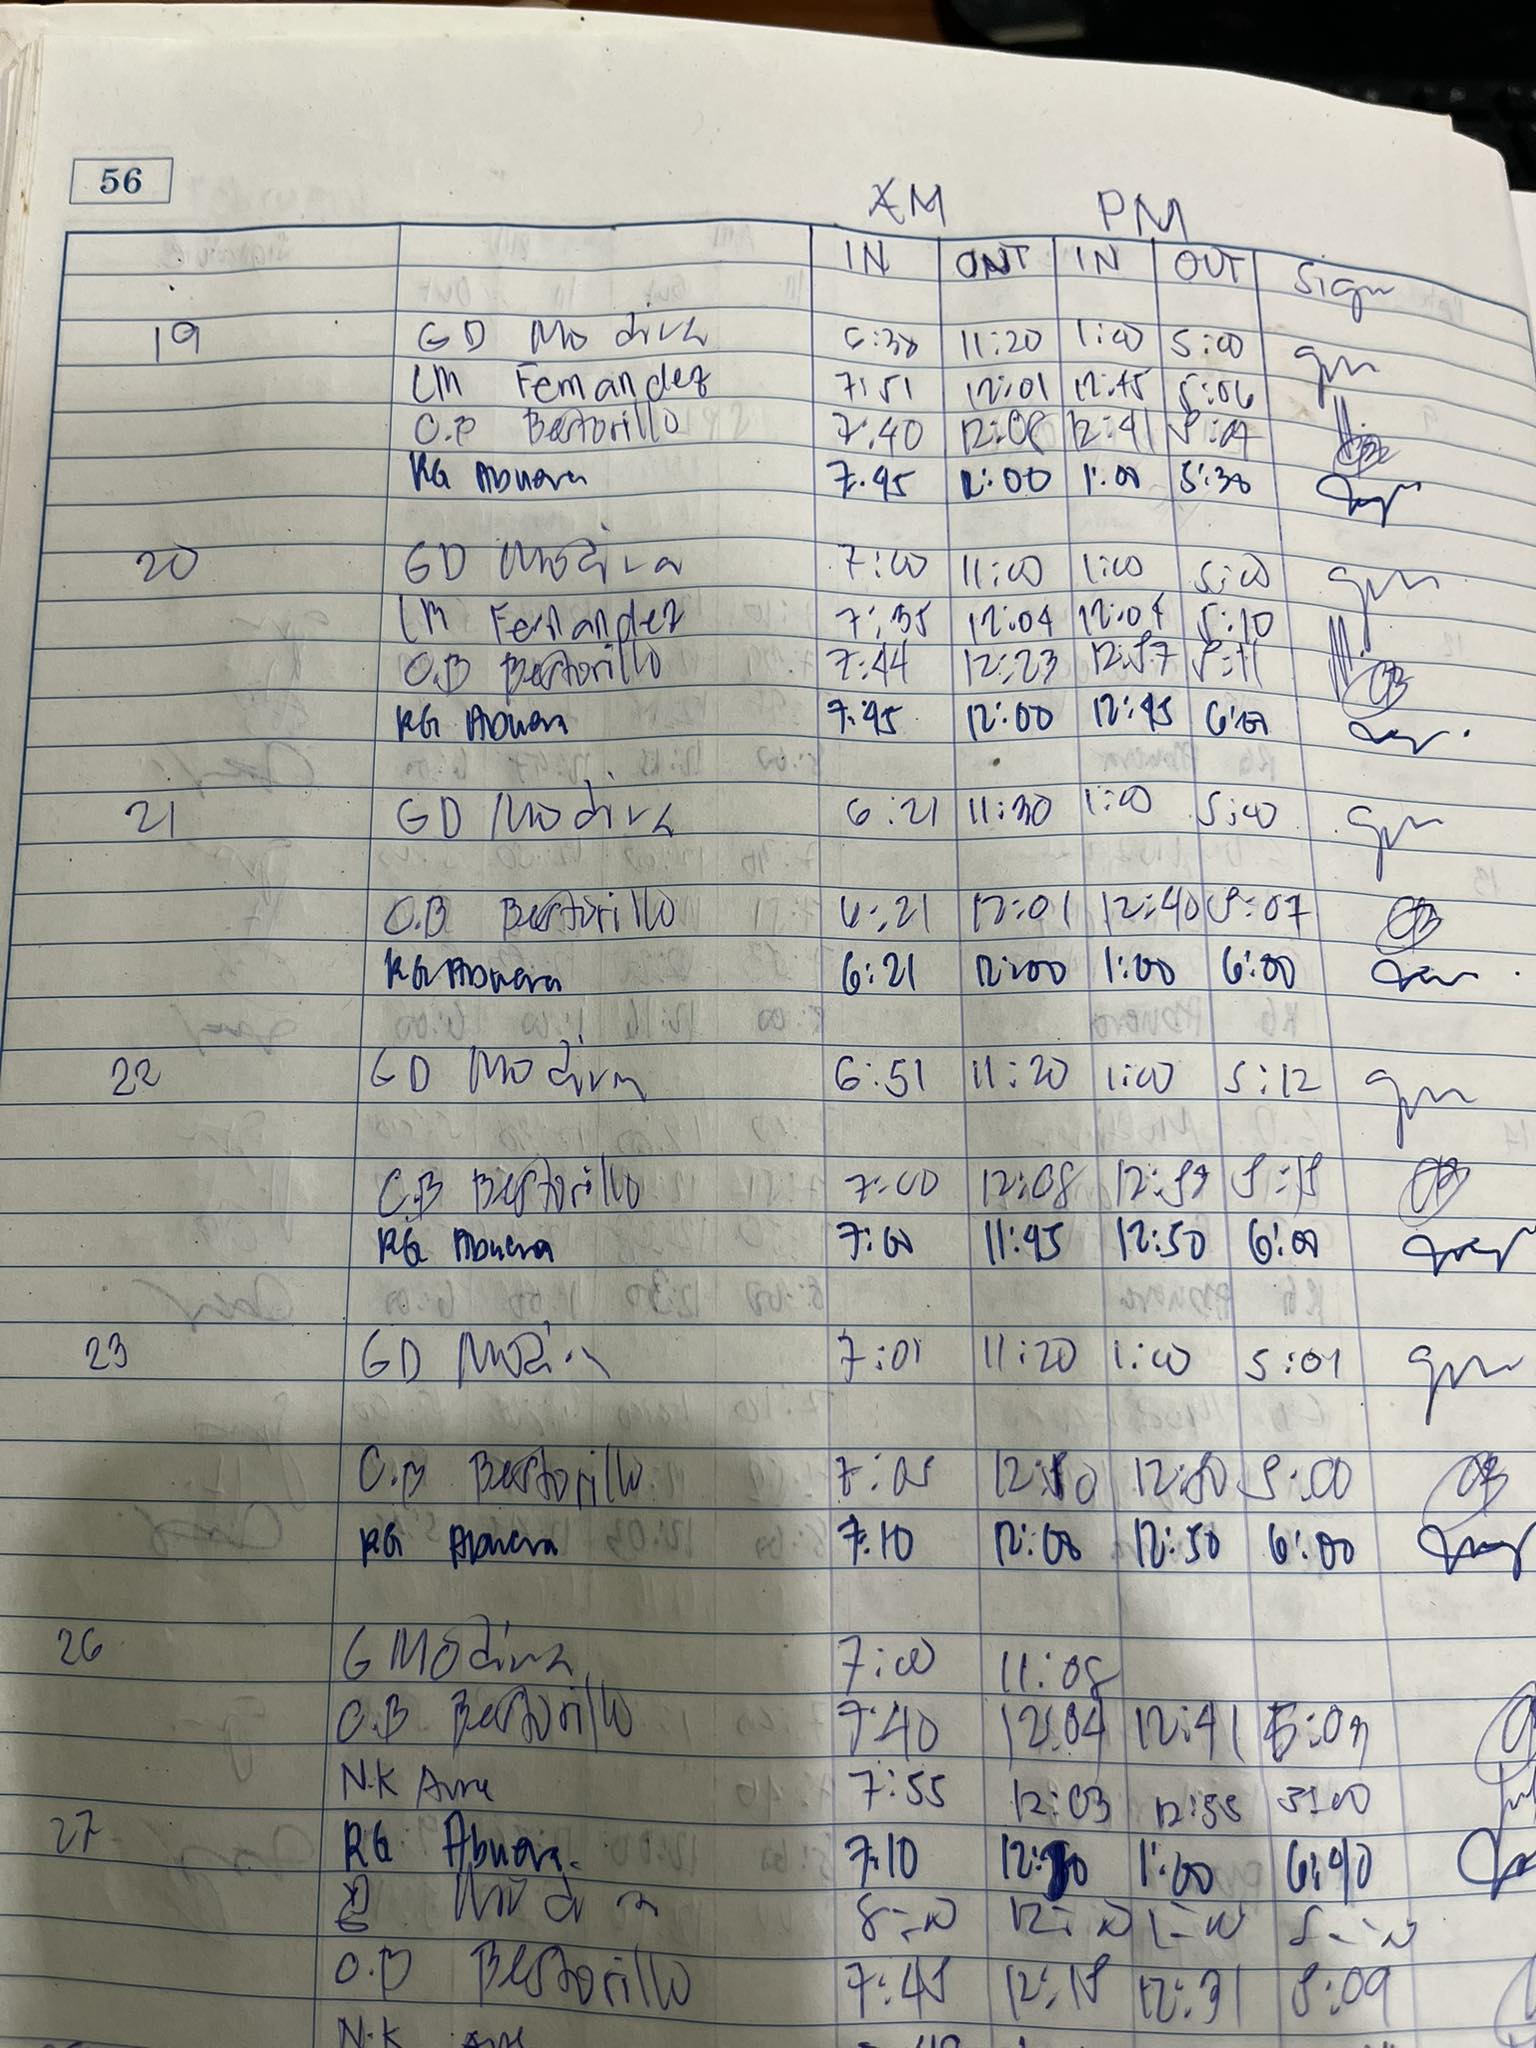 56
AM PM
IN OUT IN OUT Sign
19 GD Modina 6:30 11:20 1:00 5:00
LM Fernandez 7:51 12:01 12:45 5:06
O.B Bestorillo 7:40 12:08 12:41 5:07
RG Abuera 7:45 12:00 1:00 5:30
20 GD Modina 7:00 11:00 1:00 5:00
LM Fernandez 7:35 12:04 12:04 5:10
O.B Bestorillo 7:44 12:23 12:57 5:11
RG Abuera 7:45 12:00 12:45 6:00
21 GD Modina 6:21 11:30 1:00 5:00
O.B Bestorillo 6:21 12:01 12:40 5:07
RG Abuera 6:21 12:00 1:00 6:00
22 GD Modina 6:51 11:20 1:00 5:12
O.B Bestorillo 7:00 12:08 12:59 5:15
RG Abuera 7:00 11:45 12:50 6:00
23 GD Modina 7:01 11:20 1:00 5:01
O.B Bestorillo 7:05 12:50 5:00
RG Abuera 7:10 12:00 12:50 6:00
26 G Modina 7:00 11:08
O.B Bestorillo 7:40 12:04 12:41 5:07
N.K 7:55 12:03 12:55 5:00
27 RG Abuera 7:10 1:00 6:40
Modina 8:00 12:00 1:00 5:00
O.B Bestorillo 7:45 12:15 12:31 5:09
N.K